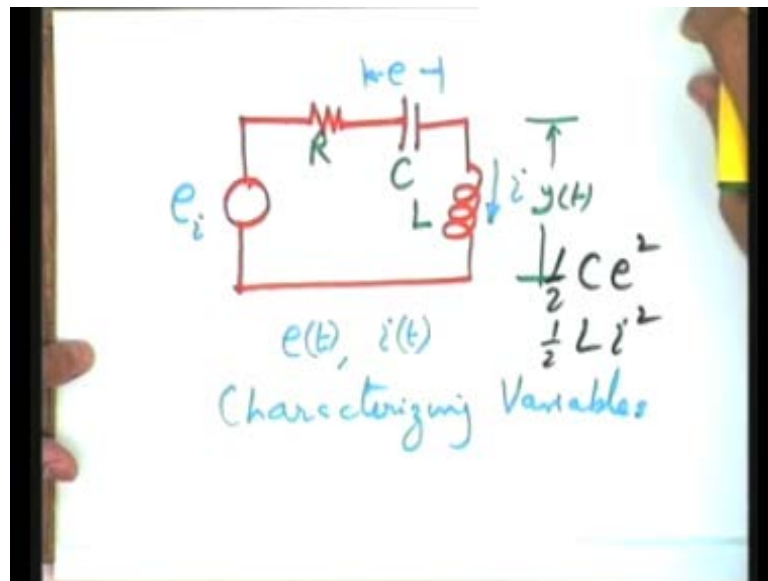 ⊢e⊣
R
C
e_i
L
i
y(t)
½ Ce²
½ Li²
e(t), i(t)
Characterizing Variables